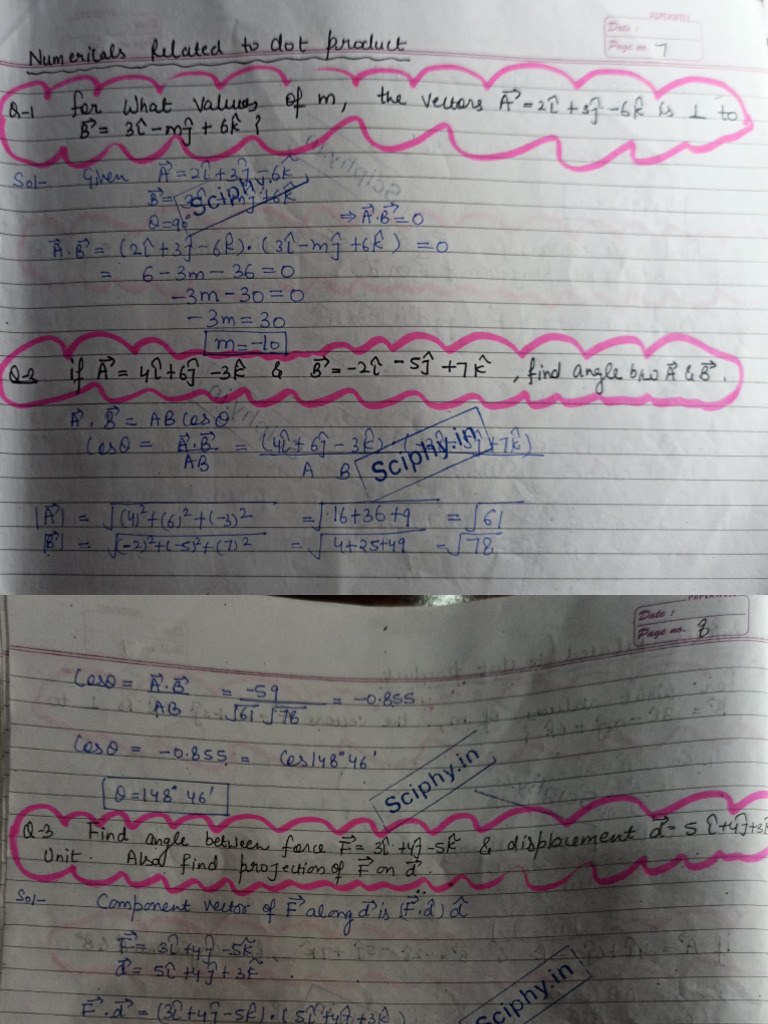 PAPERWELL
Date :
Page no. 7
Numericals Related to dot product
Q-1 for What values of m, the vectors A⃗ = 2î + 3ĵ - 6k̂ is ⊥ to
B⃗ = 3î - mĵ + 6k̂ ?
Sol- Given A⃗ = 2î + 3ĵ - 6k̂
B⃗ = 3î - mĵ + 6k̂
Sciphy.in
θ = 90° ⇒ A⃗.B⃗ = 0
A⃗.B⃗ = (2î + 3ĵ - 6k̂).(3î - mĵ + 6k̂) = 0
= 6 - 3m - 36 = 0
-3m - 30 = 0
-3m = 30
m = -10
Q-2 if A⃗ = 4î + 6ĵ - 3k̂ & B⃗ = -2î - 5ĵ + 7k̂, find angle b/w A⃗ & B⃗.
A⃗.B⃗ = AB Cosθ
Cosθ = A⃗.B⃗/AB = (4î + 6ĵ - 3k̂).(-2î - 5ĵ + 7k̂)/A B
Sciphy.in
|A⃗| = √(4)²+(6)²+(-3)² = √16+36+9 = √61
|B⃗| = √(-2)²+(-5)²+(7)² = √4+25+49 = √78
Date :
Page no. 8
Cosθ = A⃗.B⃗/AB = -59/√61 √78 = -0.855
Cosθ = -0.855 = Cos148° 46'
Sciphy.in
θ = 148° 46'
Q-3 Find angle between force F⃗ = 3î + 4ĵ - 5k̂ & displacement d⃗ = 5î + 4ĵ + 3k̂
Unit. Also find projection of F⃗ on d⃗.
Sol- Component vector of F⃗ along d⃗ is (F⃗.d̂) d̂
F⃗ = 3î + 4ĵ - 5k̂
d⃗ = 5î + 4ĵ + 3k̂
Sciphy.in
F⃗.d⃗ = (3î + 4ĵ - 5k̂).(5î + 4ĵ + 3k̂)